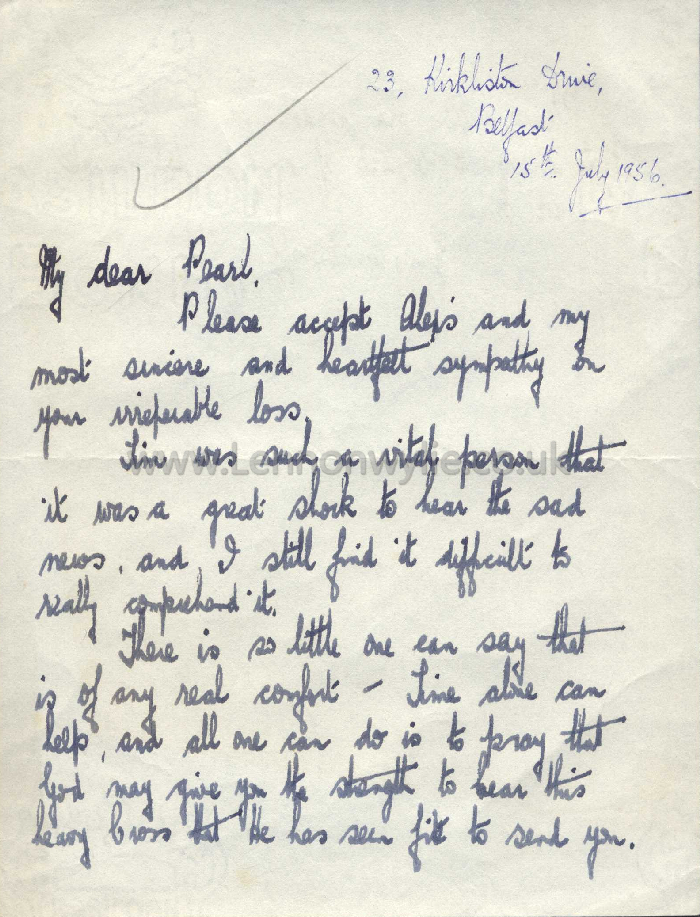 23, Kirkliston Drive,
Belfast
15th July 1956.
My dear Pearl,
Please accept Alex's and my
most sincere and heartfelt sympathy on
your irreparable loss.
Jim was such a vital person that
www.Lennonwylie.co.uk
it was a great shock to hear the sad
news, and I still find it difficult to
really comprehend it.
There is so little one can say that
is of any real comfort - Time alone can
help, and all one can do is to pray that
God may give you the strength to bear this
heavy Cross that He has seen fit to send you.